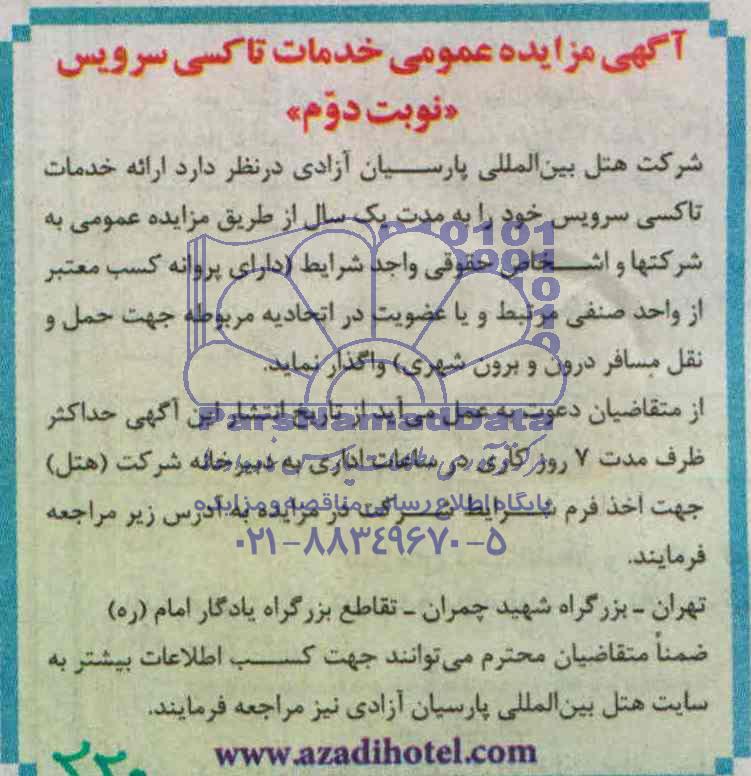 آگهی مزایده عمومی خدمات تاکسی سرویس
«نوبت دوّم»
شرکت هتل بین‌المللی پارسیان آزادی درنظر دارد ارائه خدمات
تاکسی سرویس خود را به مدت یک سال از طریق مزایده عمومی به
شرکتها و اشخاص حقوقی واجد شرایط (دارای پروانه کسب معتبر
از واحد صنفی مرتبط و یا عضویت در اتحادیه مربوطه جهت حمل و
نقل مسافر درون و برون شهری) واگذار نماید.
از متقاضیان دعوت به عمل می‌آید از تاریخ انتشار این آگهی حداکثر
ظرف مدت ۷ روز کاری در ساعات اداری به دبیرخانه شرکت (هتل)
جهت اخذ فرم شرایط شرکت در مزایده به آدرس زیر مراجعه
فرمایند.
تهران ـ بزرگراه شهید چمران ـ تقاطع بزرگراه یادگار امام (ره)
ضمناً متقاضیان محترم می‌توانند جهت کسب اطلاعات بیشتر به
سایت هتل بین‌المللی پارسیان آزادی نیز مراجعه فرمایند.
www.azadihotel.com
ParsNamadData
پایگاه اطلاع رسانی مناقصه و مزایده
۰۲۱-۸۸۳۴۹۶۷۰-۵